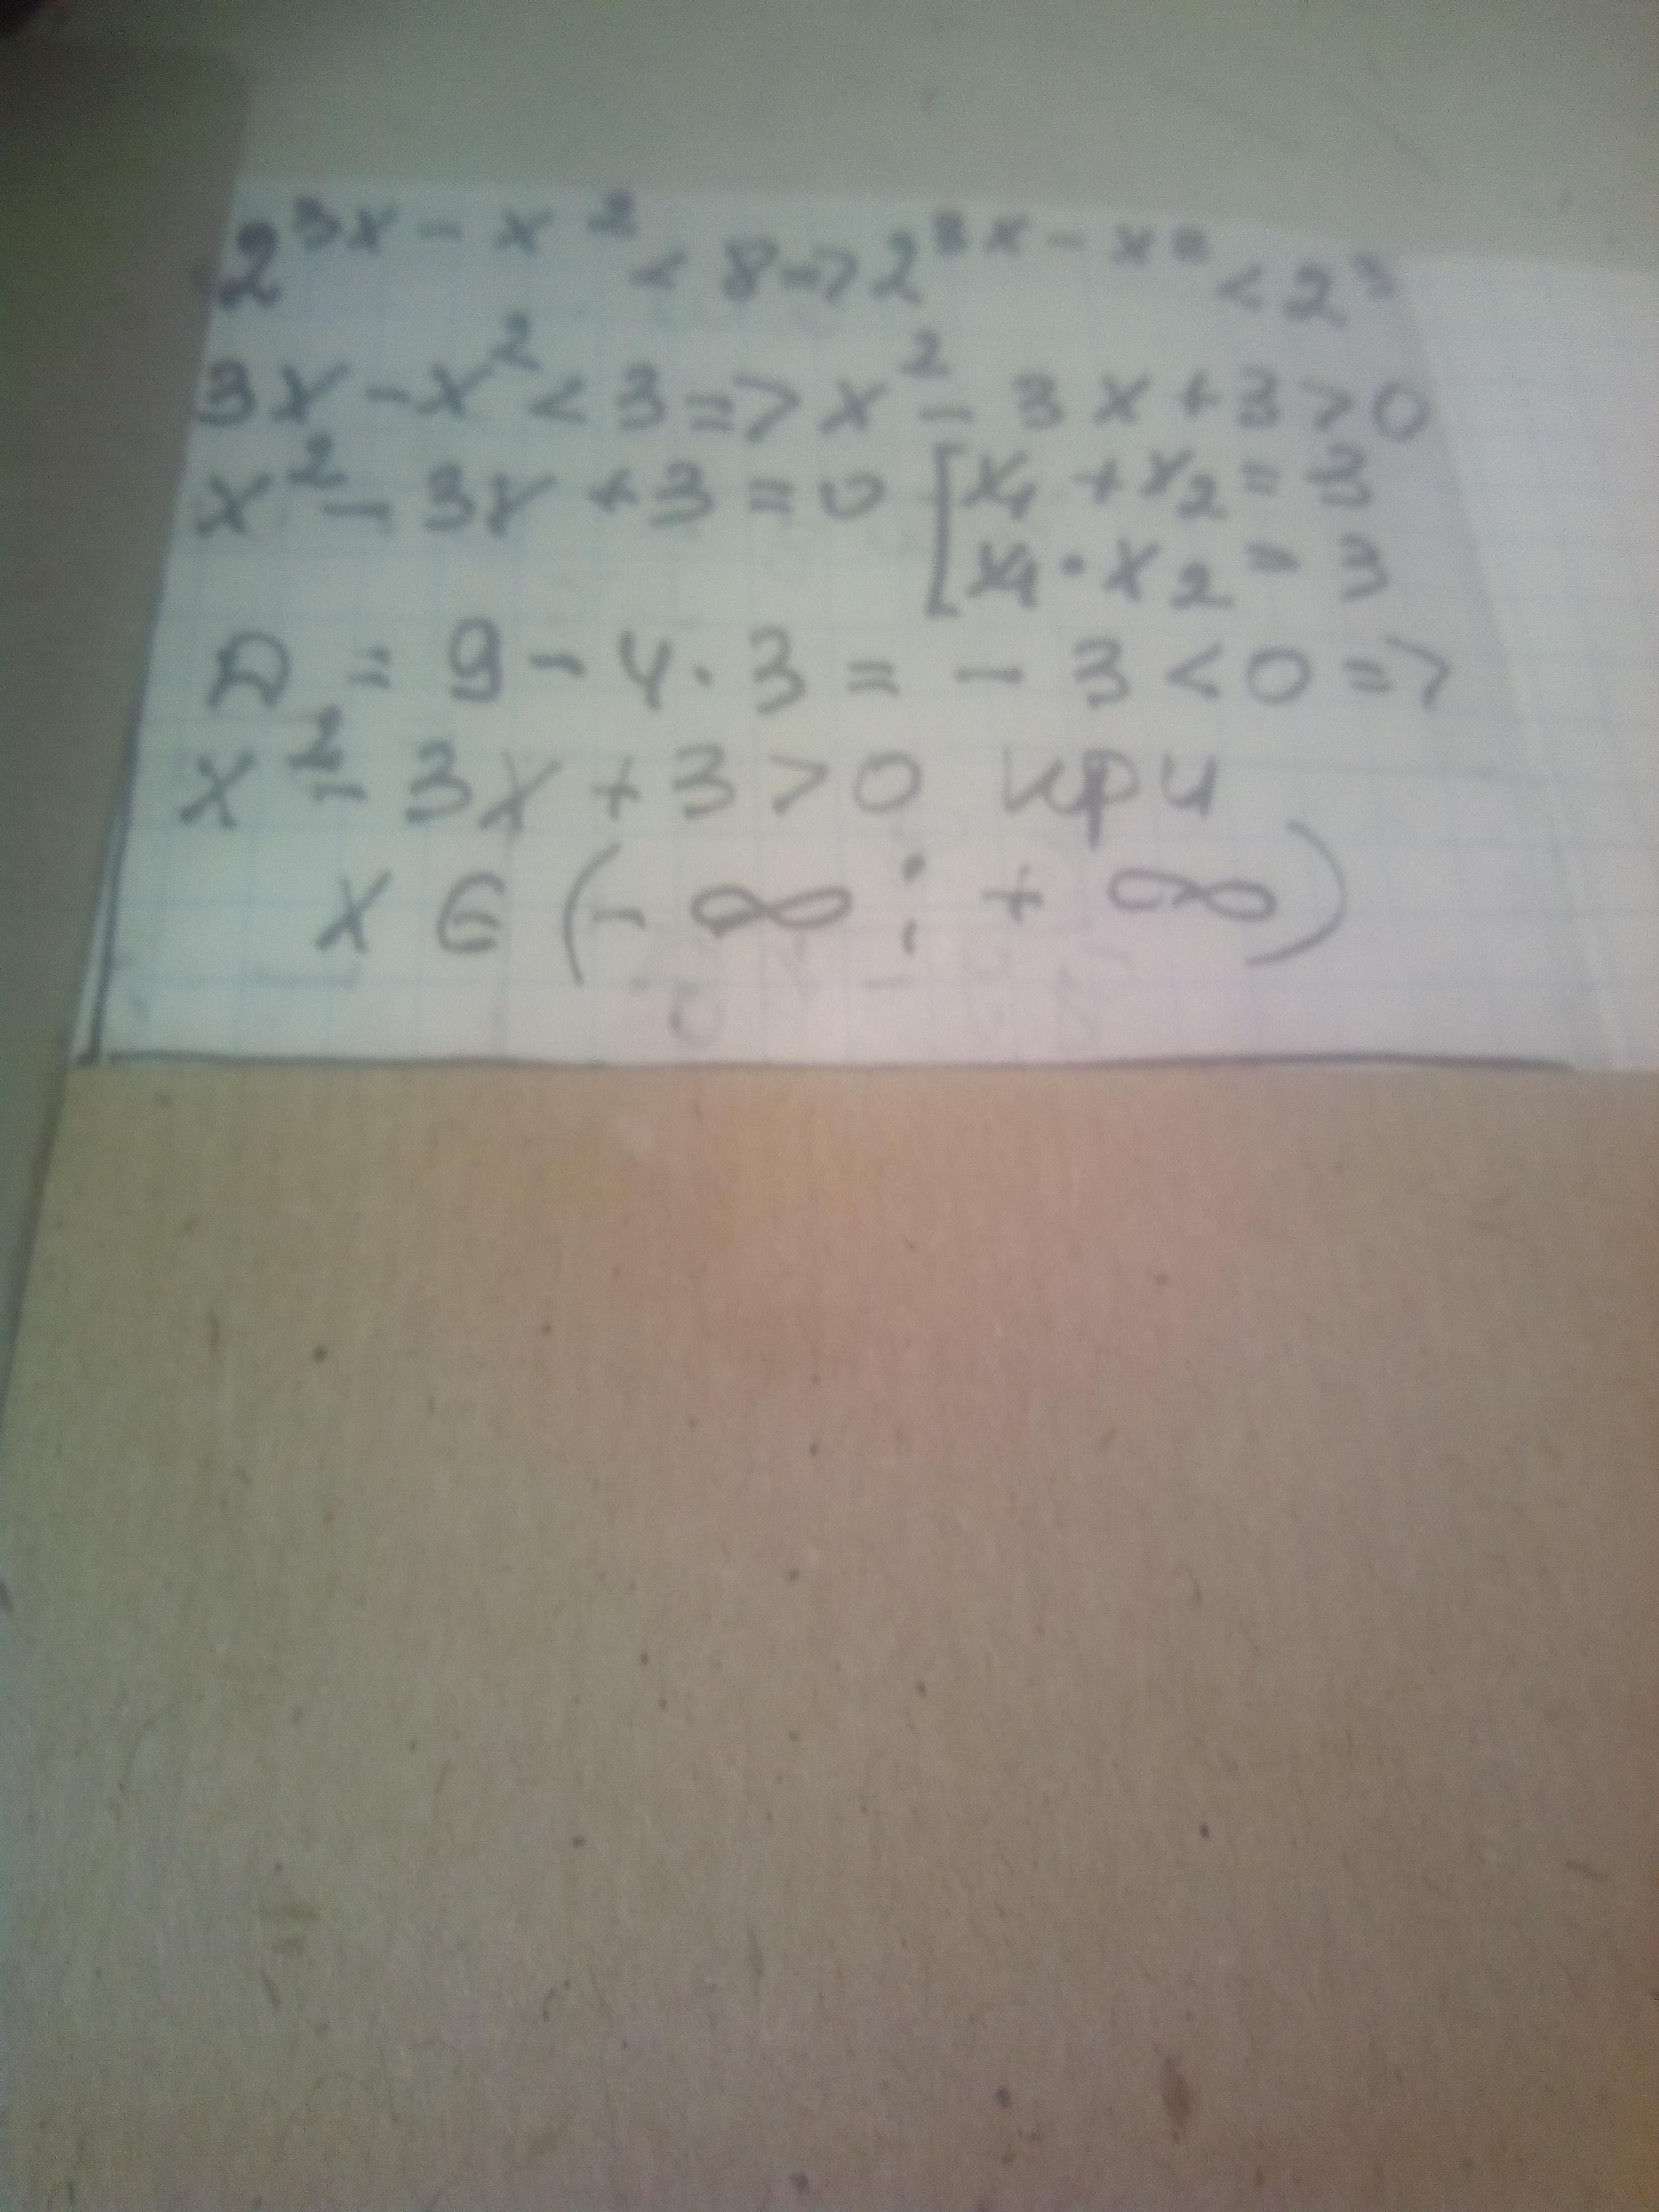 2^{3x - x^2} < 8 => 2^{3x - x^2} < 2^3
3x - x^2 < 3 => x^2 - 3x + 3 > 0
x^2 - 3x + 3 = 0 [x_1 + x_2 = 3
[x_1 · x_2 = 3
D = 9 - 4 · 3 = - 3 < 0 =>
x^2 - 3x + 3 > 0 при
x ∈ (- ∞ ; + ∞)